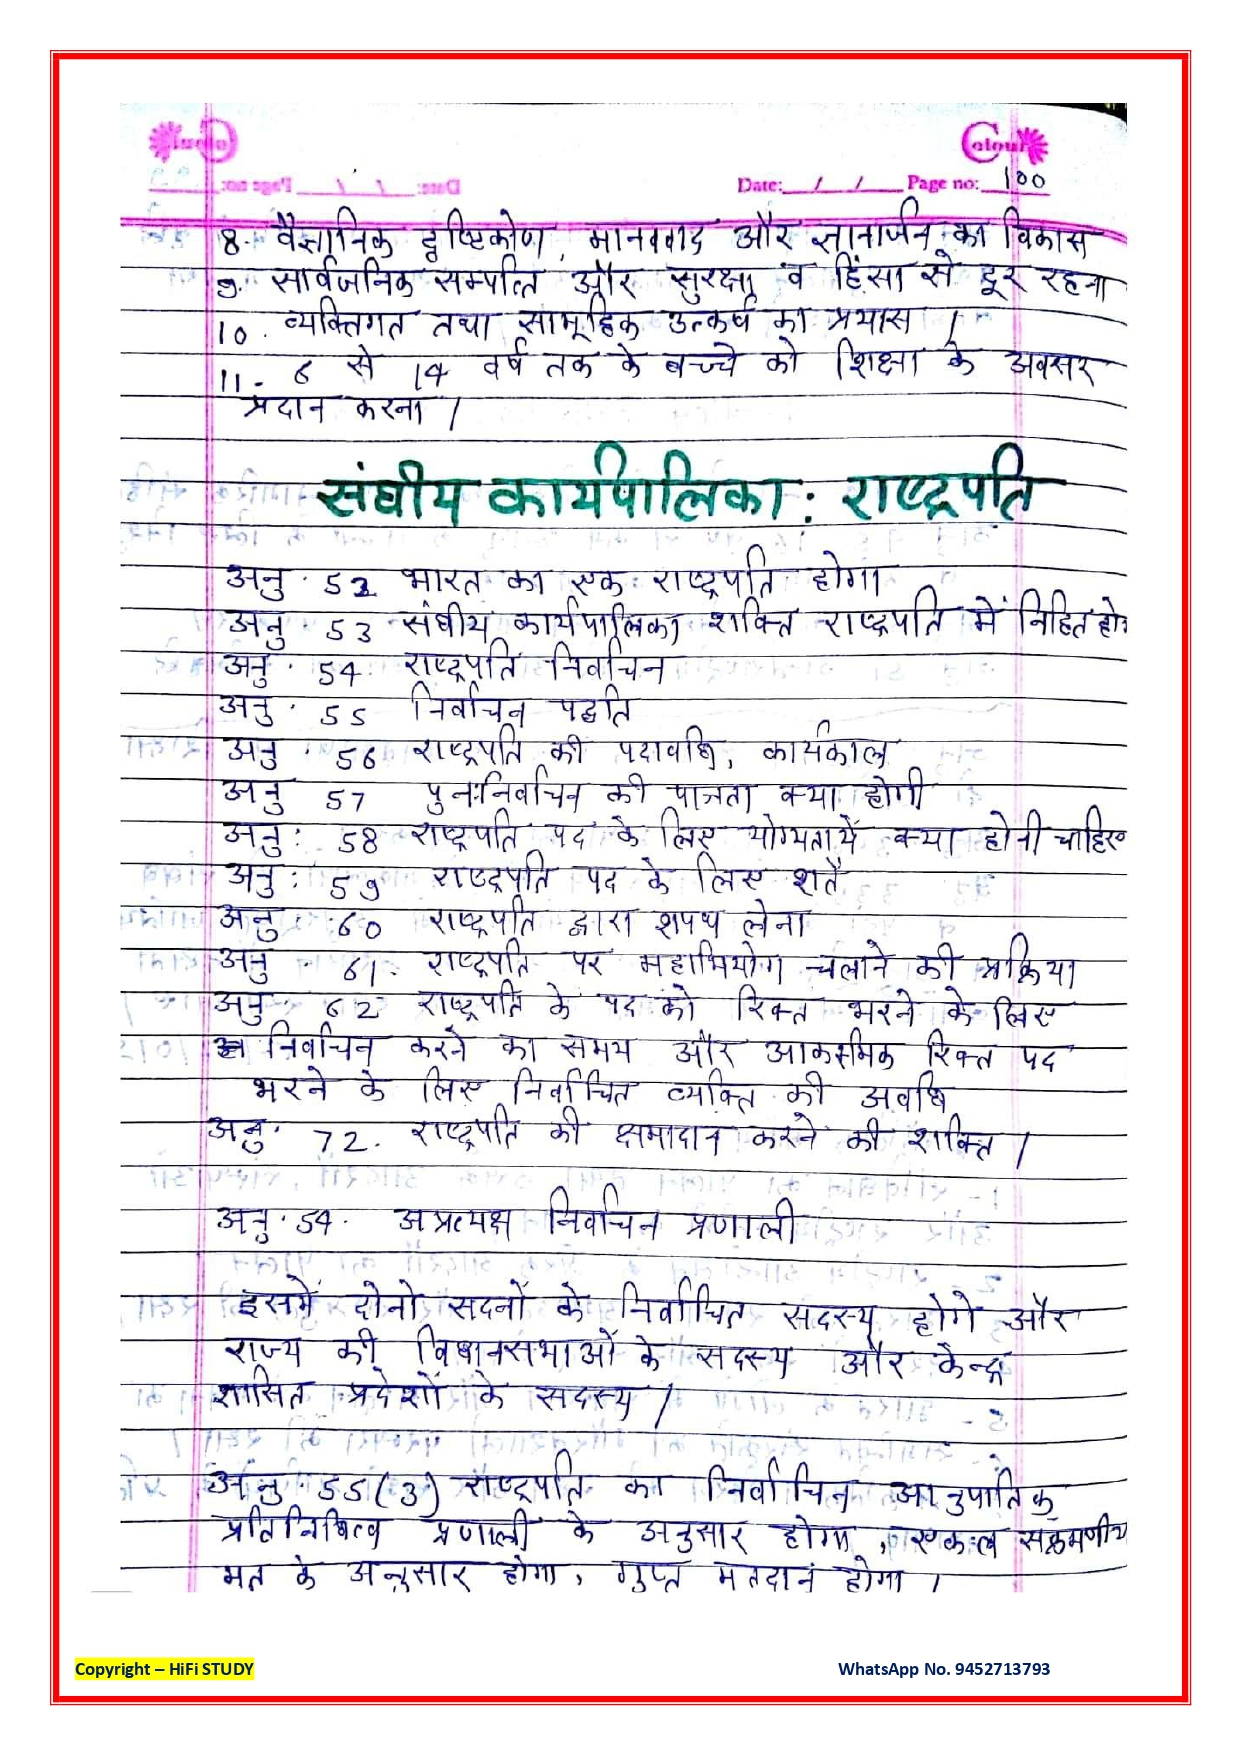 Colour
Date: / / Page no: 100
8. वैज्ञानिक दृष्टिकोण, मानववाद और ज्ञानार्जन का विकास
9. सार्वजनिक सम्पत्ति और सुरक्षा व हिंसा से दूर रहना
10. व्यक्तिगत तथा सामूहिक उत्कर्ष का प्रयास |
11. 6 से 14 वर्ष तक के बच्चे को शिक्षा के अवसर
प्रदान करना |
संघीय कार्यपालिका : राष्ट्रपति
अनु. 52 भारत का एक राष्ट्रपति होगा
अनु 53 संघीय कार्यपालिका शक्ति राष्ट्रपति में निहित
अनु. 54 राष्ट्रपति निर्वाचन
अनु. 55 निर्वाचन पद्धति
अनु 56 राष्ट्रपति की पदावधि, कार्यकाल
अनु 57 पुनःनिर्वाचन की पात्रता क्या होगी
अनु: 58 राष्ट्रपति पद के लिए योग्यतायें क्या होनी चाहिए
अनु: 59 राष्ट्रपति पद के लिए शर्तें
अनु 60 राष्ट्रपति द्वारा शपथ लेना
अनु 61. राष्ट्रपति पर महाभियोग चलाने की प्रक्रिया
अनु 62 राष्ट्रपति के पद को रिक्त भरने के लिए
निर्वाचन करने का समय और आकस्मिक रिक्त पद
भरने के लिए निर्वाचित व्यक्ति की अवधि
अनु. 72. राष्ट्रपति की क्षमादान करने की शक्ति |
अनु. 54. अप्रत्यक्ष निर्वाचन प्रणाली
इसमें दोनो सदनों के निर्वाचित सदस्य होगे और
राज्य की विधानसभाओं के सदस्य और केन्द्र
शासित प्रदेशों के सदस्य |
अनु. 55(3) राष्ट्रपति का निर्वाचन आनुपातिक
प्रतिनिधित्व प्रणाली के अनुसार होगा, एकल सक्रमणीय
मत के अनुसार होगा, गुप्त मतदान होगा |
Copyright – HiFi STUDY
WhatsApp No. 9452713793